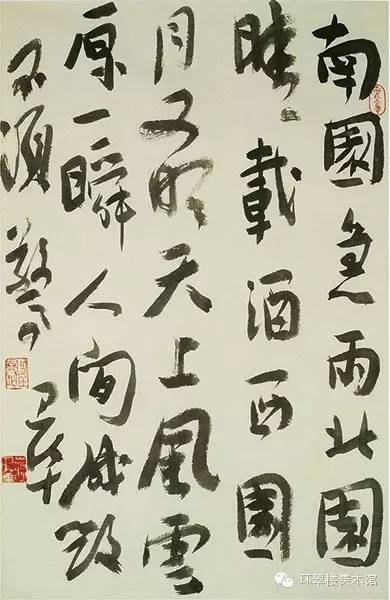 南園急雨北園
晴載酒西園
月又明天上風雲
原一瞬人間成敗
不須驚
环翠楼美术馆